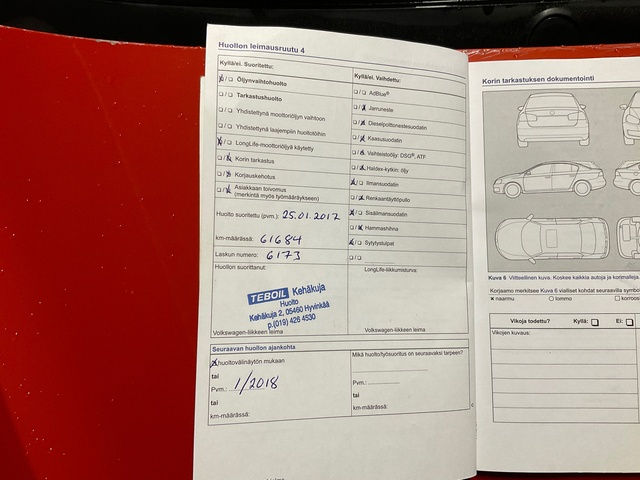 Huollon leimausruutu 4
Kyllä/ei. Suoritettu:
Öljynvaihtohuolto
Tarkastushuolto
Yhdistettynä moottoriöljyn vaihtoon
Yhdistettynä laajempiin huoltotöihin
LongLife-moottoriöljyä käytetty
Korin tarkastus
Korjauskehotus
Asiakkaan toivomus
(merkintä myös työmääräykseen)
Huolto suoritettu (pvm.): 25.01.2017
km-määrässä: 61684
Laskun numero: 6173
Huollon suorittanut:
TEBOIL Kehäkuja
Huolto
Kehäkuja 2, 05460 Hyvinkää
p.(019) 426 4530
Volkswagen-liikkeen leima
Kyllä/ei. Vaihdettu:
AdBlue®
Jarruneste
Dieselpolttonestesuodatin
Kaasusuodatin
Vaihteistoöljy: DSG®, ATF
Haldex-kytkin: öljy
Ilmansuodatin
Renkaantäyttöpullo
Sisäilmansuodatin
Hammashihna
Sytytystulpat
LongLife-liikkumisturva:
Volkswagen-liikkeen leima
Seuraavan huollon ajankohta
huoltovälinäytön mukaan
tai
Pvm.: 1/2018
tai
km-määrässä:
Mikä huolto/työsuoritus on seuraavaksi tarpeen?
Pvm.:
tai
km-määrässä:
Korin tarkastuksen dokumentointi
Kuva 6 Viitteellinen kuva. Koskee kaikkia autoja ja korimalleja.
Korjaamo merkitsee Kuva 6 vialliset kohdat seuraavilla
x naarmu
lommo
Vikoja todettu? Kyllä: Ei:
Vikojen kuvaus: